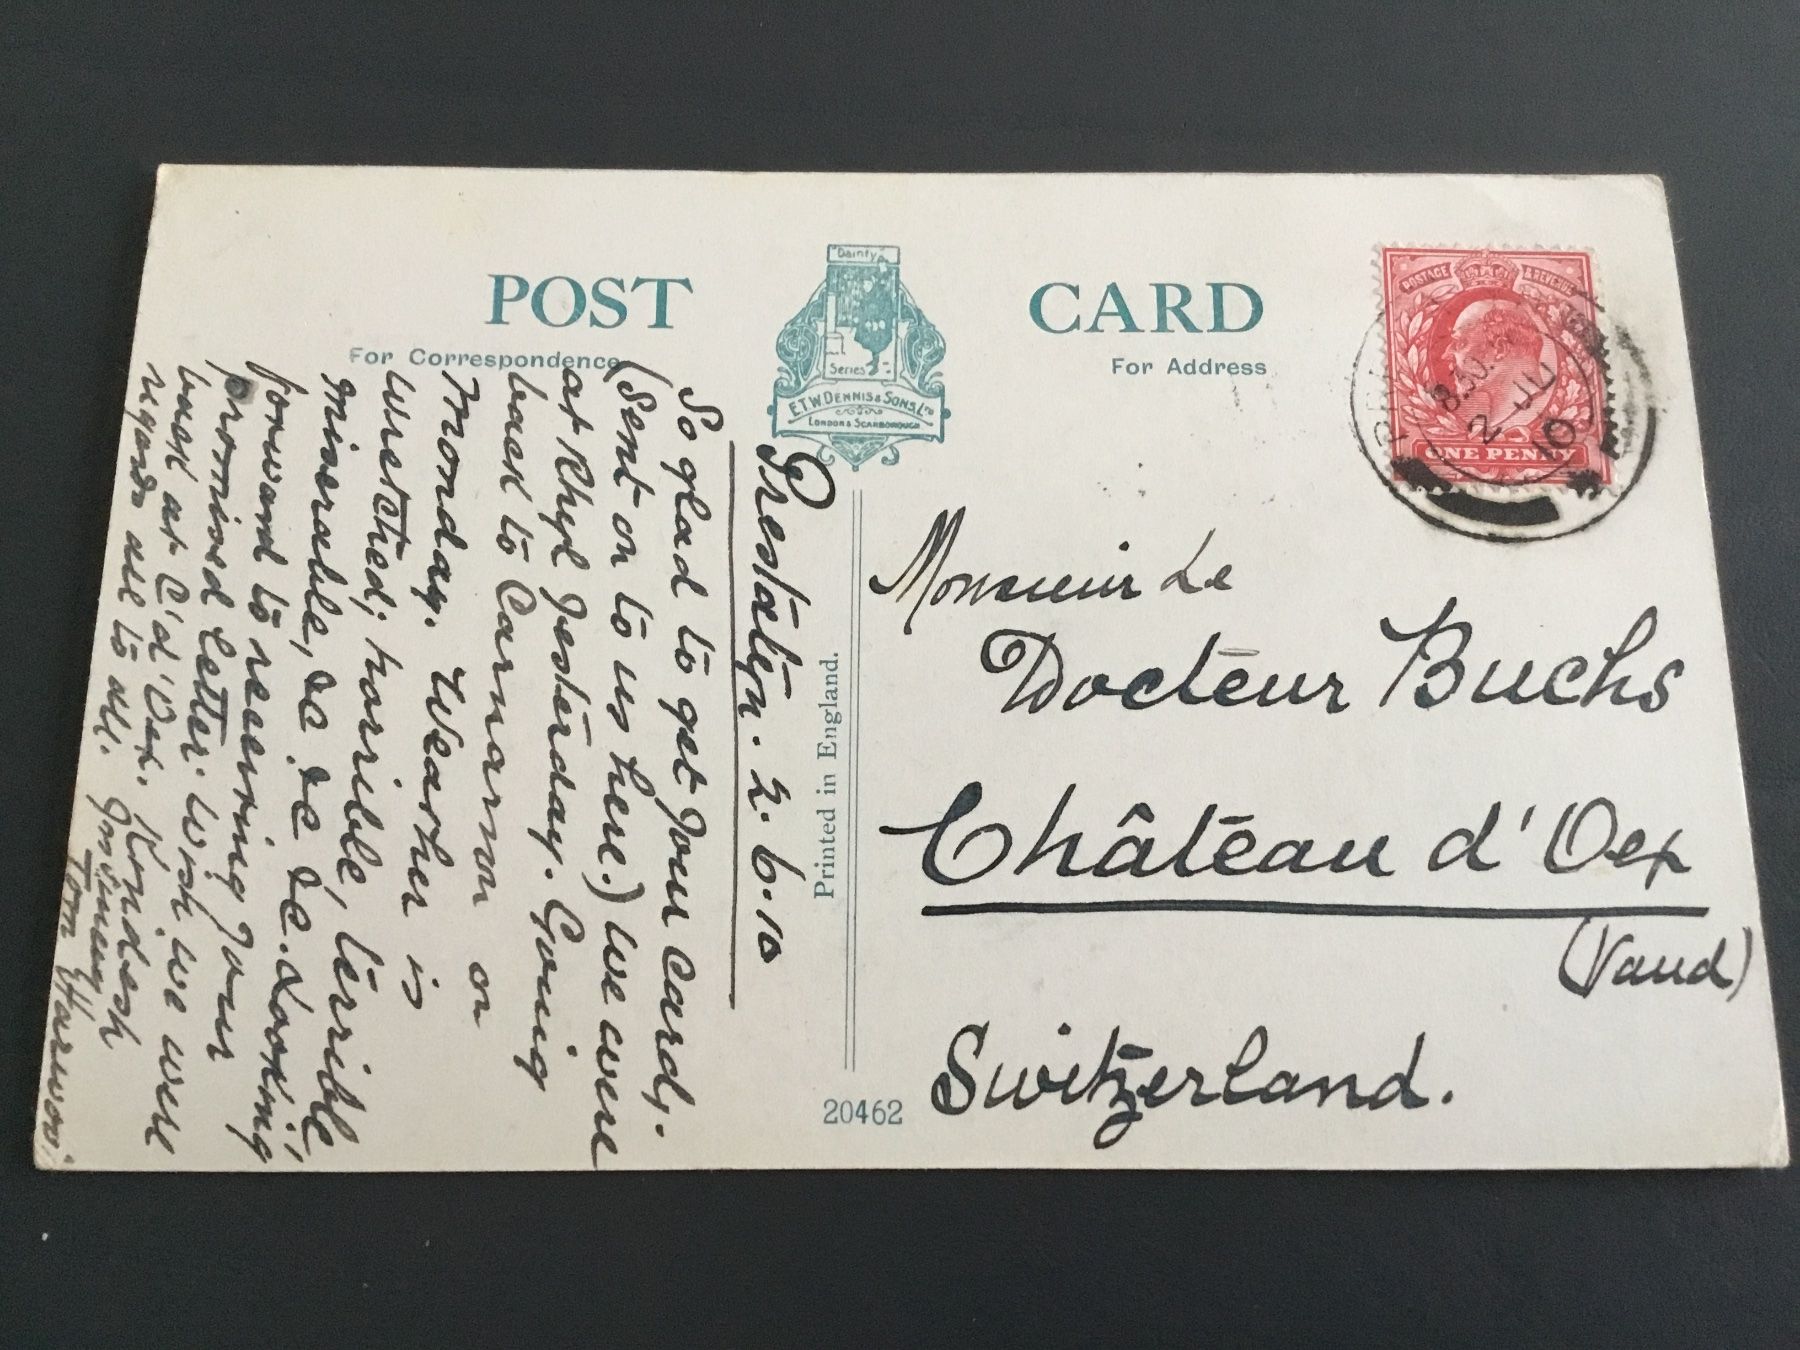 POST CARD
For Correspondence
For Address
"Dainty"
Series
E.T.W. DENNIS & SONS, LTD
LONDON & SCARBOROUGH
Printed in England.
20462
POSTAGE & REVENUE
ONE PENNY
8.30
2 JU
10
Prestatyn. 2.6.10
So glad to get your card,
(sent on to us here.) We were
at Rhyl yesterday. Going
back to Carnarvon on
Monday. Weather is
wretched; horrible, terrible
miserable, &c &c &c. Looking
forward to receiving your
promised letter. Wish we were
back at C'd'Oex. Kindest
regards all to all.
Tom
Monsieur Le
Docteur Buchs
Château d'Oex
(Vaud)
Switzerland.